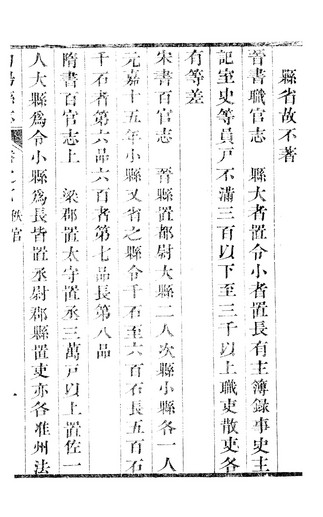 縣省故不著
晉書職官志　縣大者置令小者置長有主簿錄事史主
記室史等員戸不滿三百以下至三千以上職吏散吏各
有等差
宋書百官志　晉縣置都尉大縣二人次縣小縣各一人
元嘉十五年小縣又省之縣令千石至六百石長五百石
千石者第六品六百者第七品長第八品
隋書百官志上　梁郡置太守置丞三萬戸以上置佐一
人大縣爲令小縣爲長皆置丞尉郡縣置吏亦各准州法
秩官